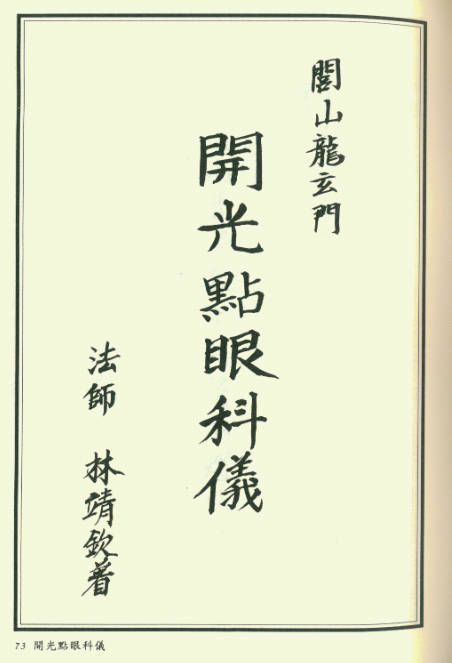 閭山龍玄門
開光點眼科儀
法師 林靖欽着
73 開光點眼科儀